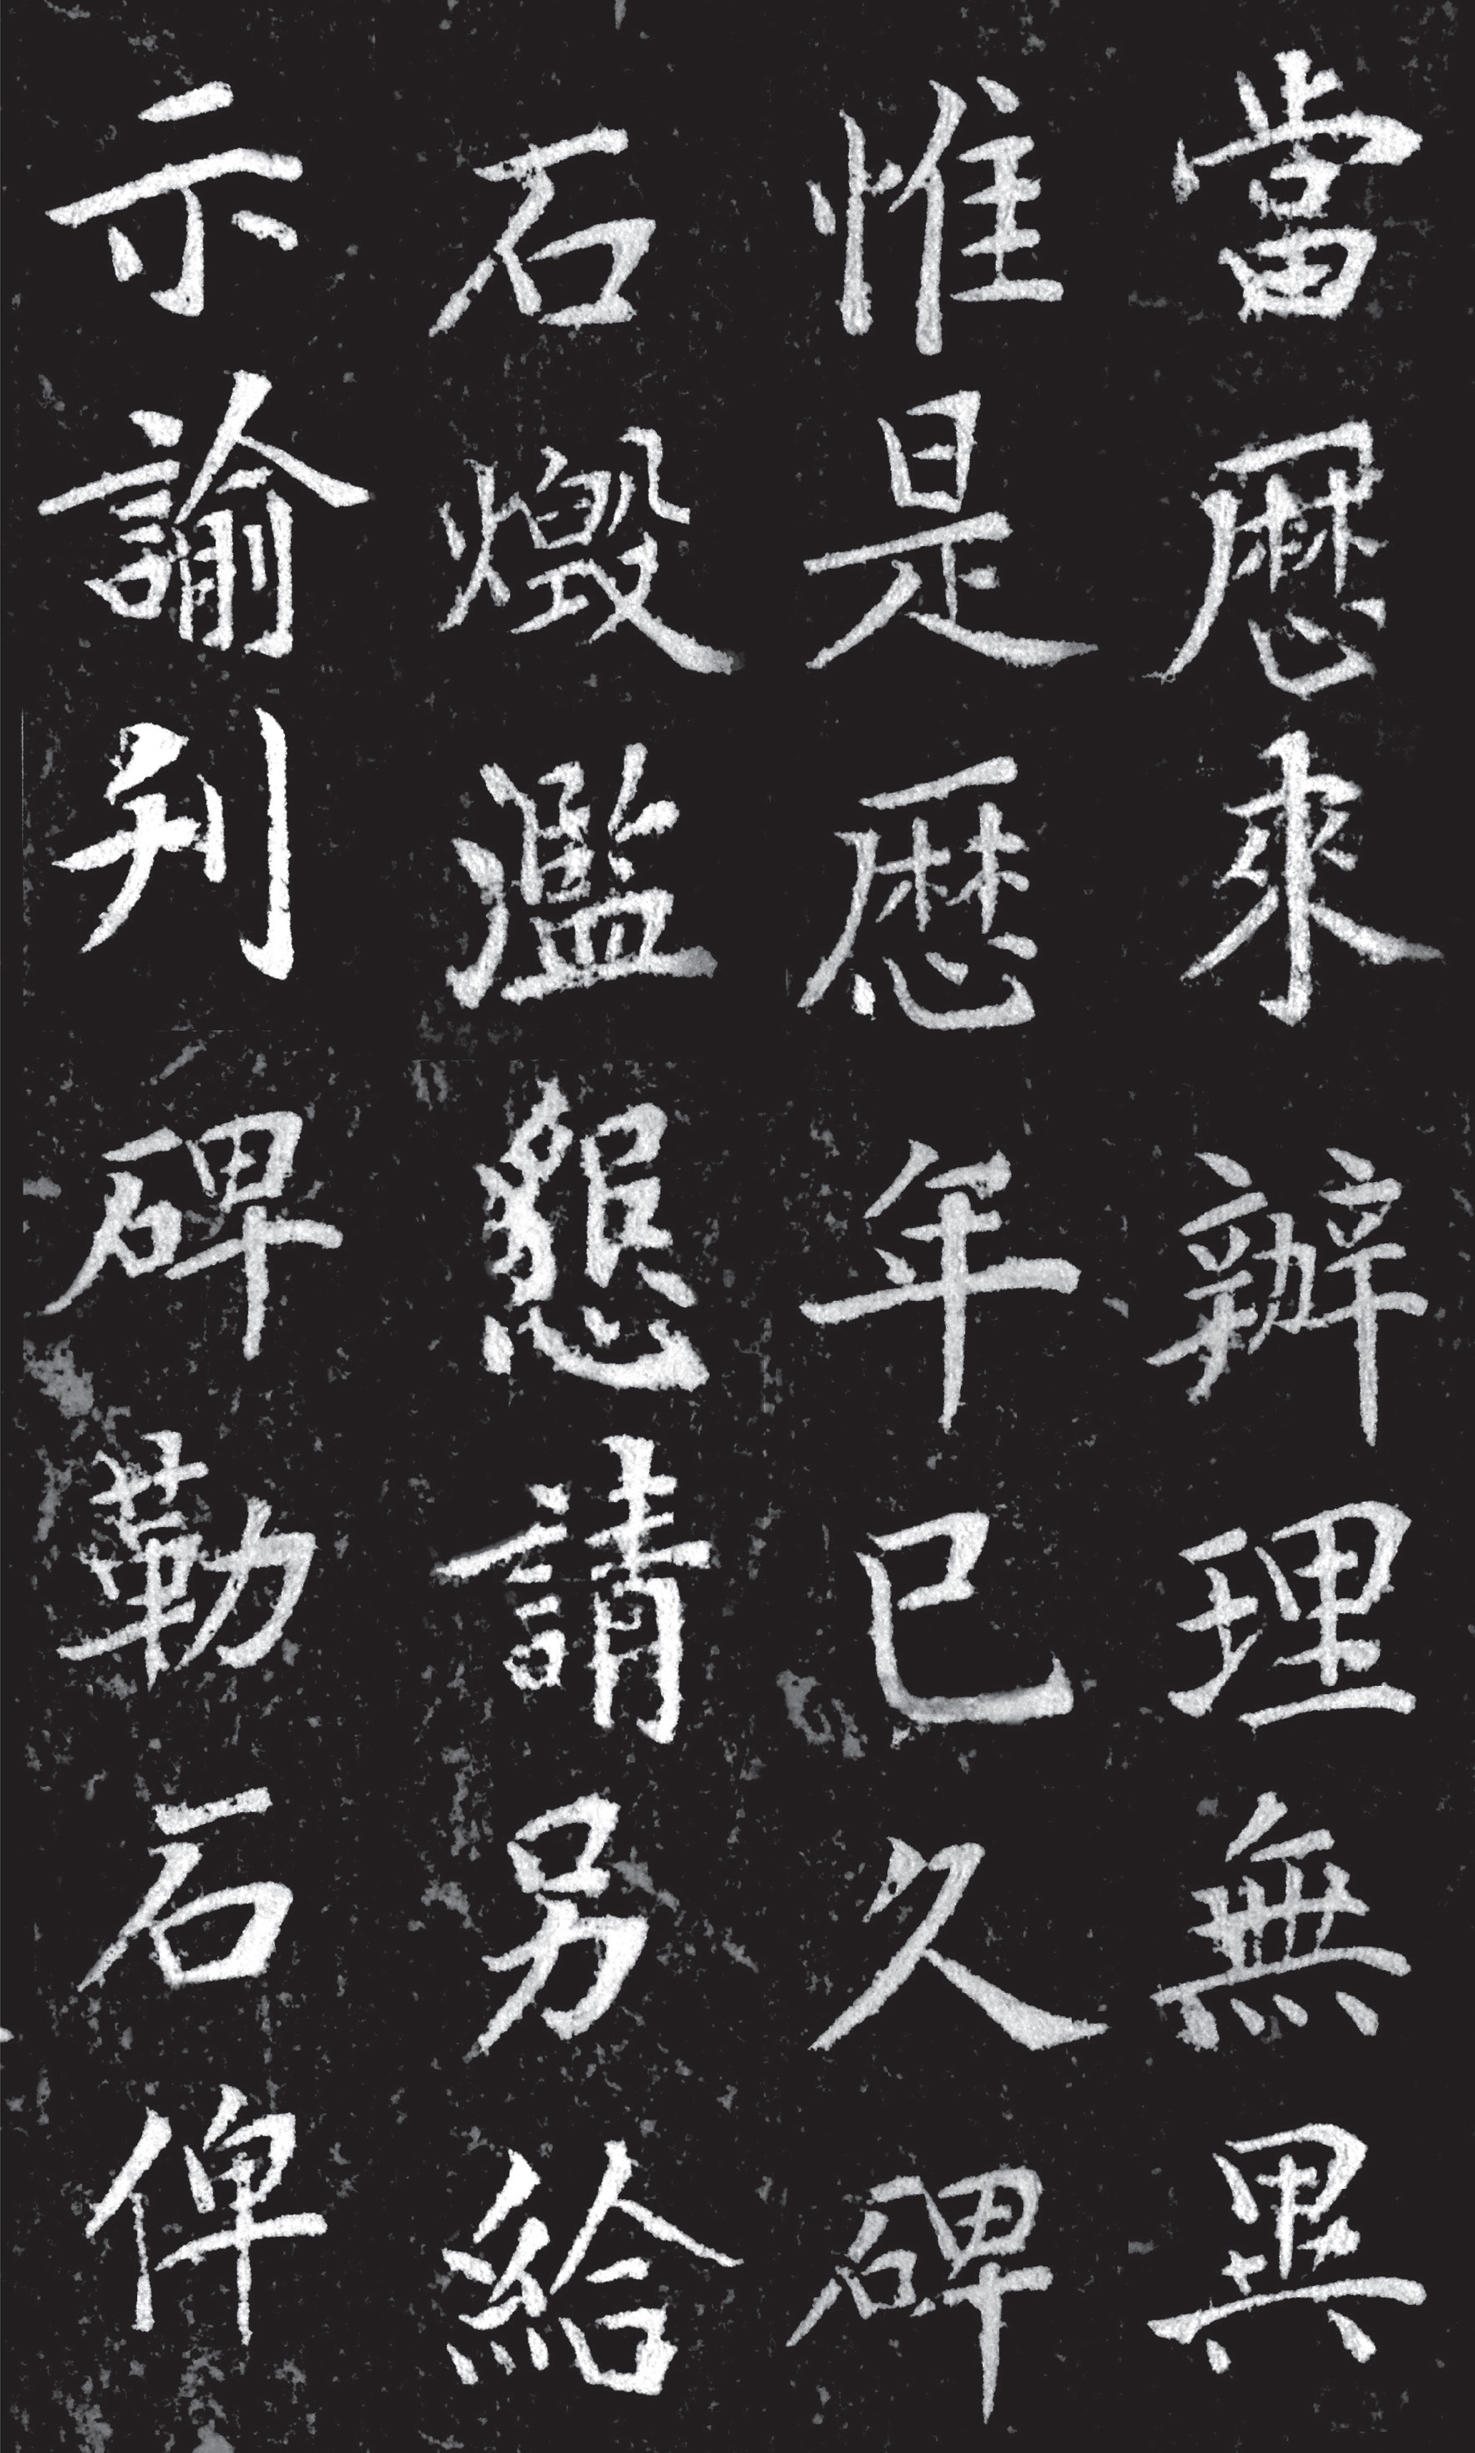 當厯來辦理無異
惟是厯年已久碑
石燬濫懇請另給
示諭刋碑勒石俾